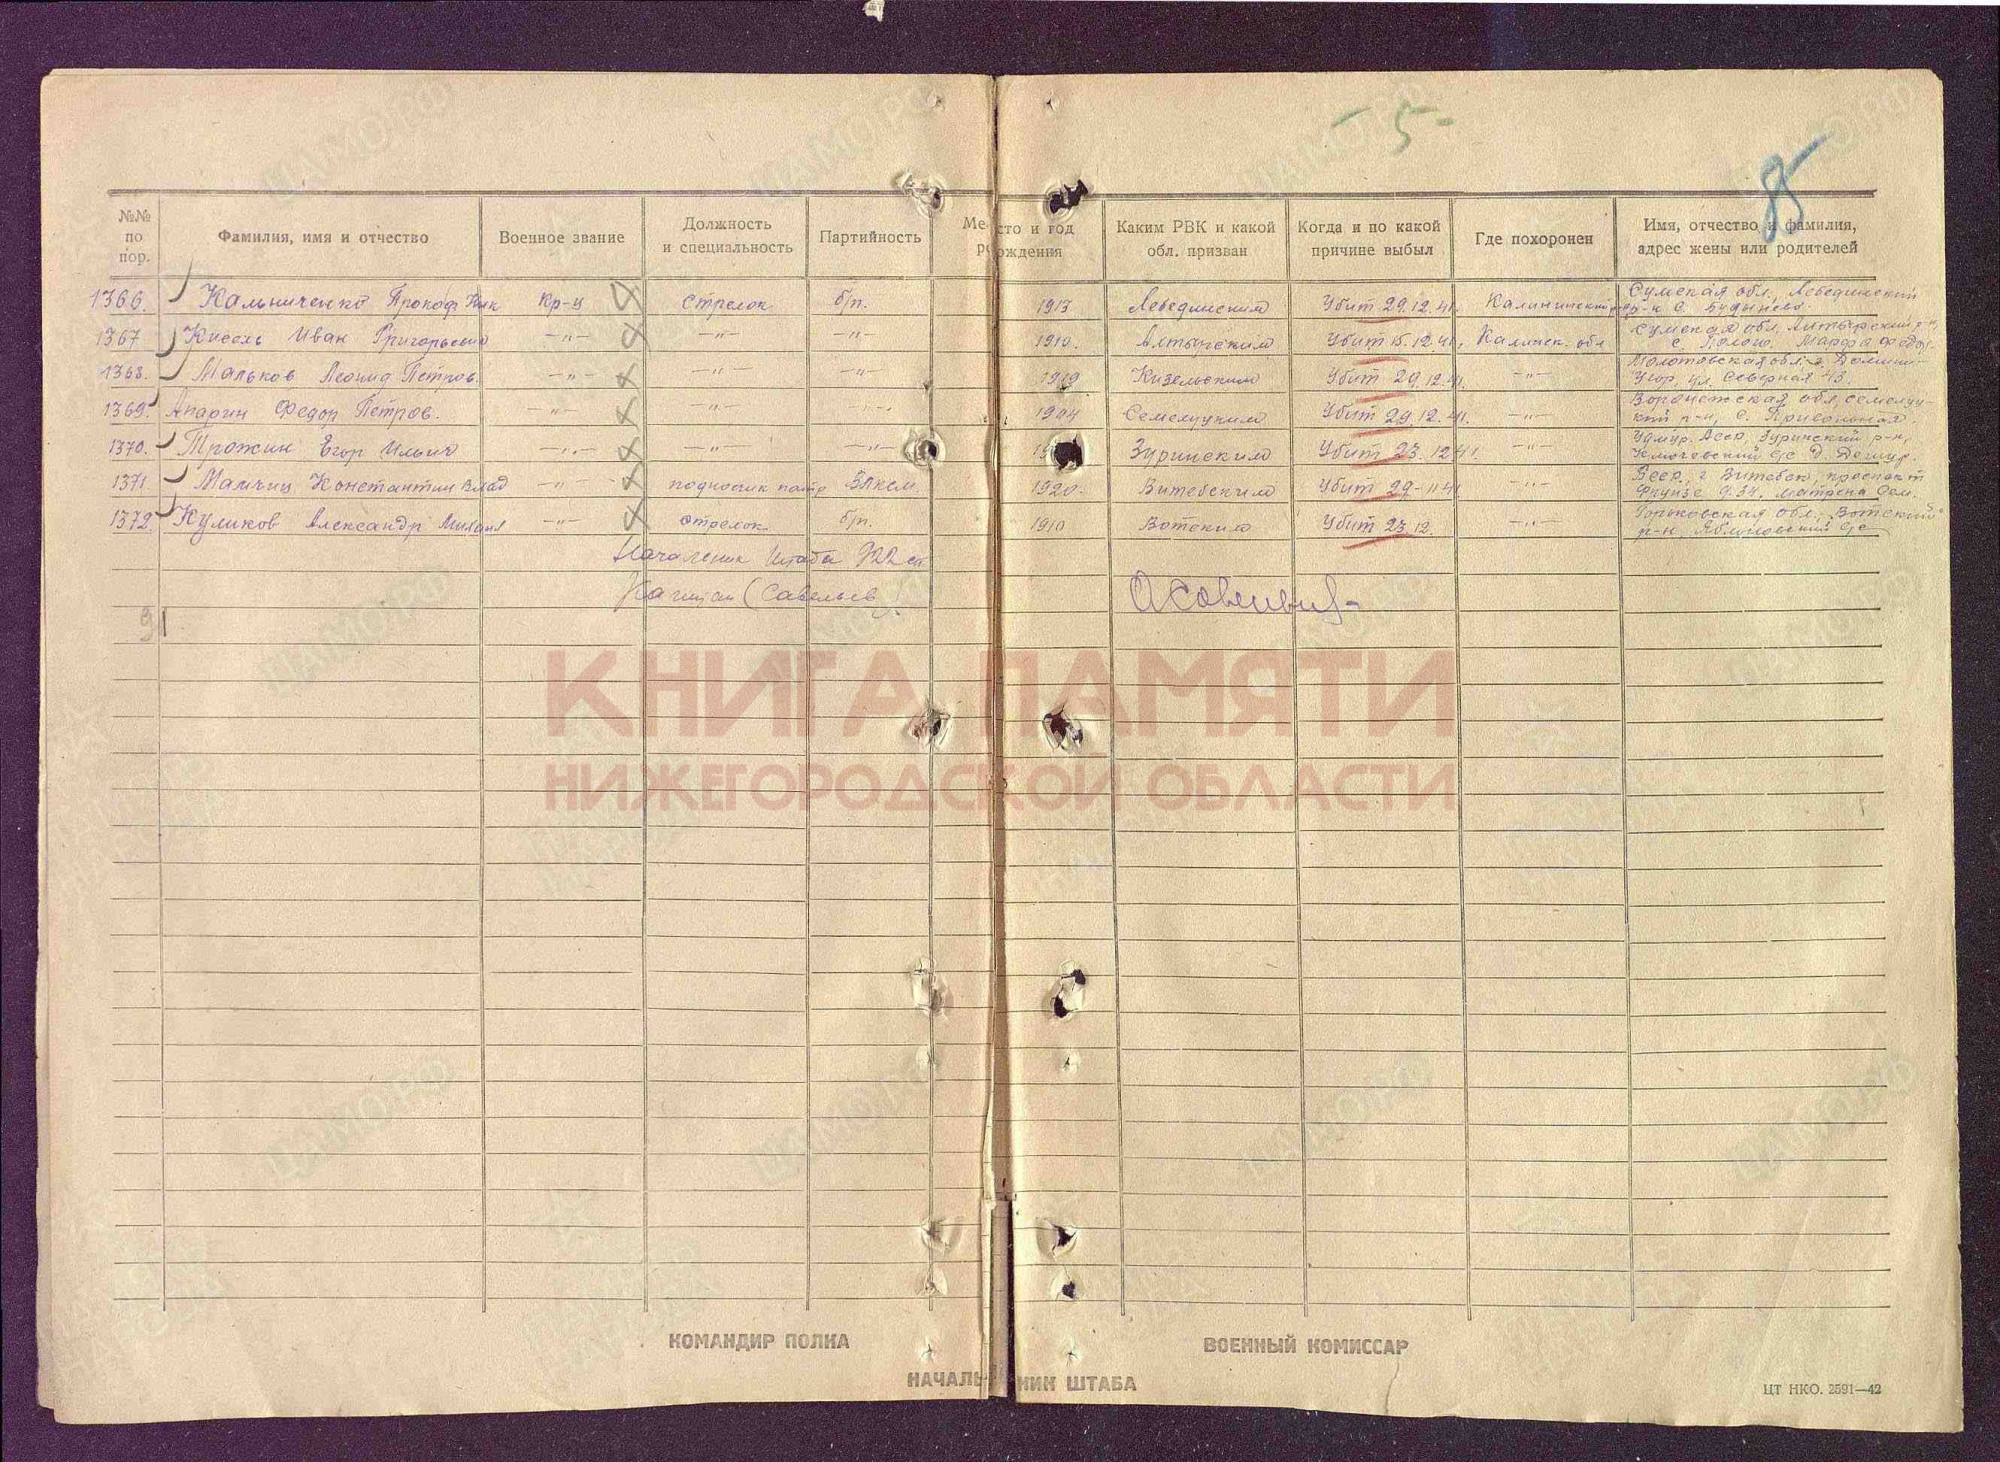 - 5 -
85
№№ по пор. Фамилия, имя и отчество Военное звание Должность и специальность Партийность Место и год рождения Каким РВК и какой обл. призван Когда и по какой причине выбыл Где похоронен Имя, отчество и фамилия, адрес жены или родителей
1366. Кальниченко Прокоф. Кр-ц стрелок б/п. 1913 Лебединским Убит 29.12.41. Калининской Сумская обл., Лебединский р-н с.
1367 Кисель Иван Григорьевич —"— —"— —"— 1910. Убит 15.12.41. Калинск. обл Сумская обл. с. Марфа Федор.
1368. Мальков Леонид Петров. —"— —"— —"— 1919 Кизельским Убит 29.12.41. —"— Молотовская обл. ул. Северная 43.
1369. Апарин Федор Петров. —"— —"— —"— 1904 Семелуцким Убит 29.12.41. —"— Воронежская обл, Семелуцкий р-н, с.
1370. Трожин Егор Ильич —"— —"— —"— Зуринским Убит 23.12.41. —"— Удмур. Асср, Зуринский р-н, с/с д.
1371 Мамчиц Константин Влад —"— подносчик патр ВЛКСМ. 1920. Витебским Убит 29-11-41 —"— Бсср, г. Витебск, проспект Фрунзе д. 34. Матрена Сем.
1372. Куликов Александр Михаил —"— стрелок б/п. 1910 Вотским Убит 23.12. —"— Горьковская обл., Вотский р-н, Яблоновский с/с
Начальник Штаба 922 сп
Капитан (Савельев)
91
КНИГА ПАМЯТИ
НИЖЕГОРОДСКОЙ ОБЛАСТИ
КОМАНДИР ПОЛКА ВОЕННЫЙ КОМИССАР
НАЧАЛЬНИК ШТАБА
ЦТ НКО. 2591—42